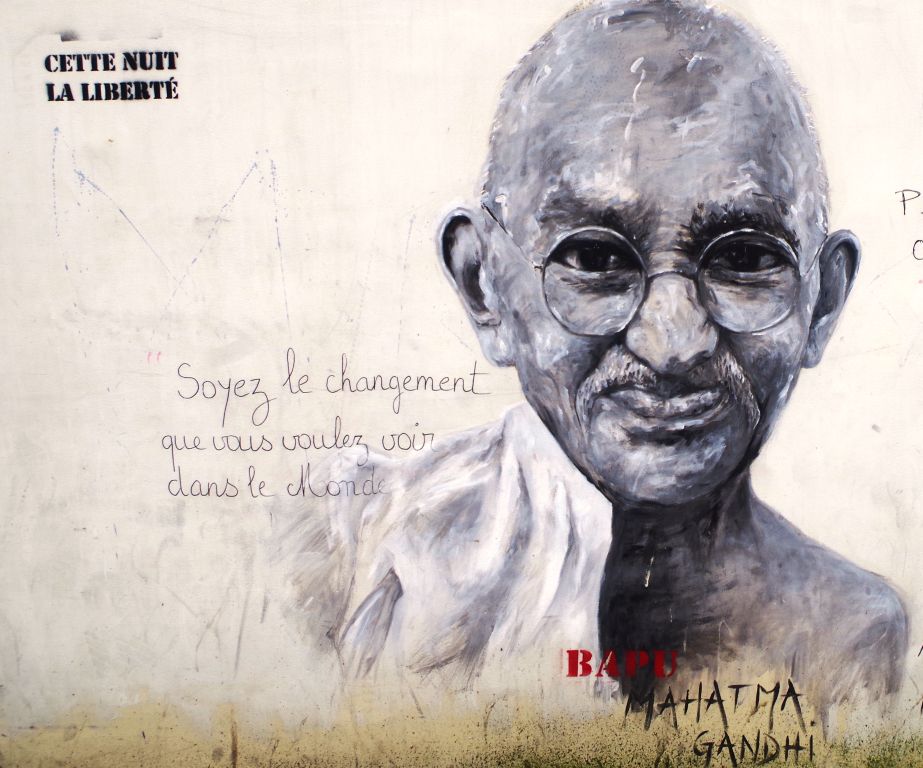 CETTE NUIT
LA LIBERTÉ
" Soyez le changement
que vous voulez voir
dans le Monde
BAPU
MAHATMA
GANDHI